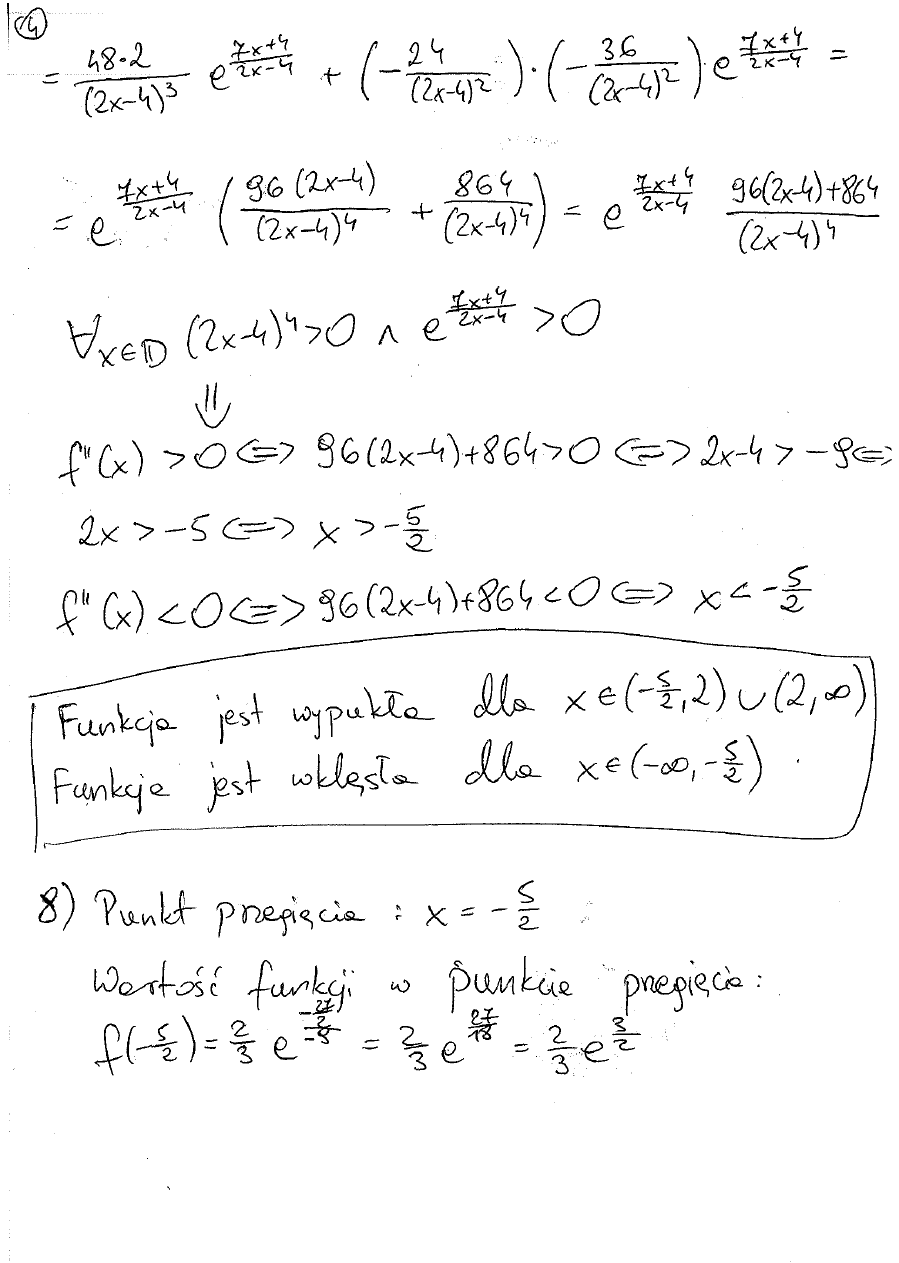 4
= \frac{48·2}{(2x-4)^3} e^{\frac{7x+4}{2x-4}} + (-\frac{24}{(2x-4)^2})·(-\frac{36}{(2x-4)^2}) e^{\frac{7x+4}{2x-4}} =
= e^{\frac{7x+4}{2x-4}} (\frac{96(2x-4)}{(2x-4)^4} + \frac{864}{(2x-4)^4}) = e^{\frac{7x+4}{2x-4}} \frac{96(2x-4)+864}{(2x-4)^4}
∀x∈D (2x-4)^4>0 ∧ e^{\frac{7x+4}{2x-4}} >0
⇓
f''(x) >0 ⇔ 96(2x-4)+864>0 ⇔ 2x-4 > -9 ⇔
2x > -5 ⇔ x > -\frac{5}{2}
f''(x) <0 ⇔ 96(2x-4)+864<0 ⇔ x < -\frac{5}{2}
Funkcja jest wypukła dla x∈(-\frac{5}{2},2) ∪ (2,∞)
Funkcja jest wklęsła dla x∈(-∞,-\frac{5}{2}).
8) Punkt przegięcia : x = -\frac{5}{2}
Wartość funkcji w punkcie przegięcia:
f(-\frac{5}{2}) = \frac{2}{3} e^{\frac{-\frac{27}{2}}{-9}} = \frac{2}{3} e^{\frac{27}{18}} = \frac{2}{3} e^{\frac{3}{2}}